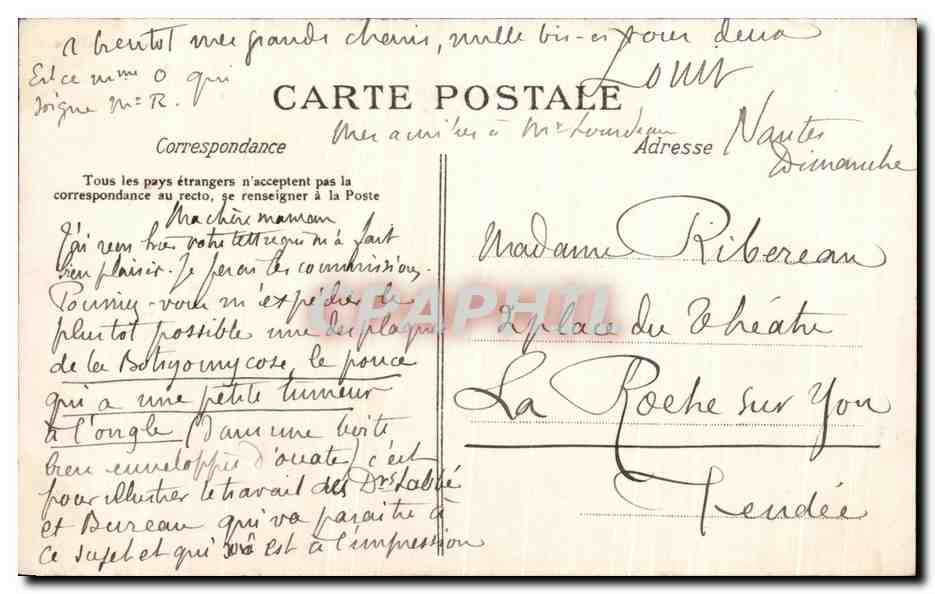 A bientot mes grands cheris, mille bis-es pour deux
Louis
Est ce Mme O qui
soigne Mr R.
CARTE POSTALE
Mes amitiés à Mr Lourdeau
Nantes
Dimanche
Correspondance
Adresse
Tous les pays étrangers n'acceptent pas la
correspondance au recto, se renseigner à la Poste
Ma chère maman
J'ai recu hier votre lettre qui m'a fait
bien plaisir. Je ferai les commissions.
Pourriez-vous m'expédier le
plutot possible une des plaques
de la Botryomycose, le pouce
qui a une petite tumeur
à l'ongle (dans une boite
bien enveloppée d'ouate) c'est
pour illustrer le travail des Drs Labbé
et Bureau qui va paraitre à
ce sujet et qui est à l'impression
Madame Ribereau
2 place du Théâtre
La Roche sur Yon
Vendée
CPAPHIL